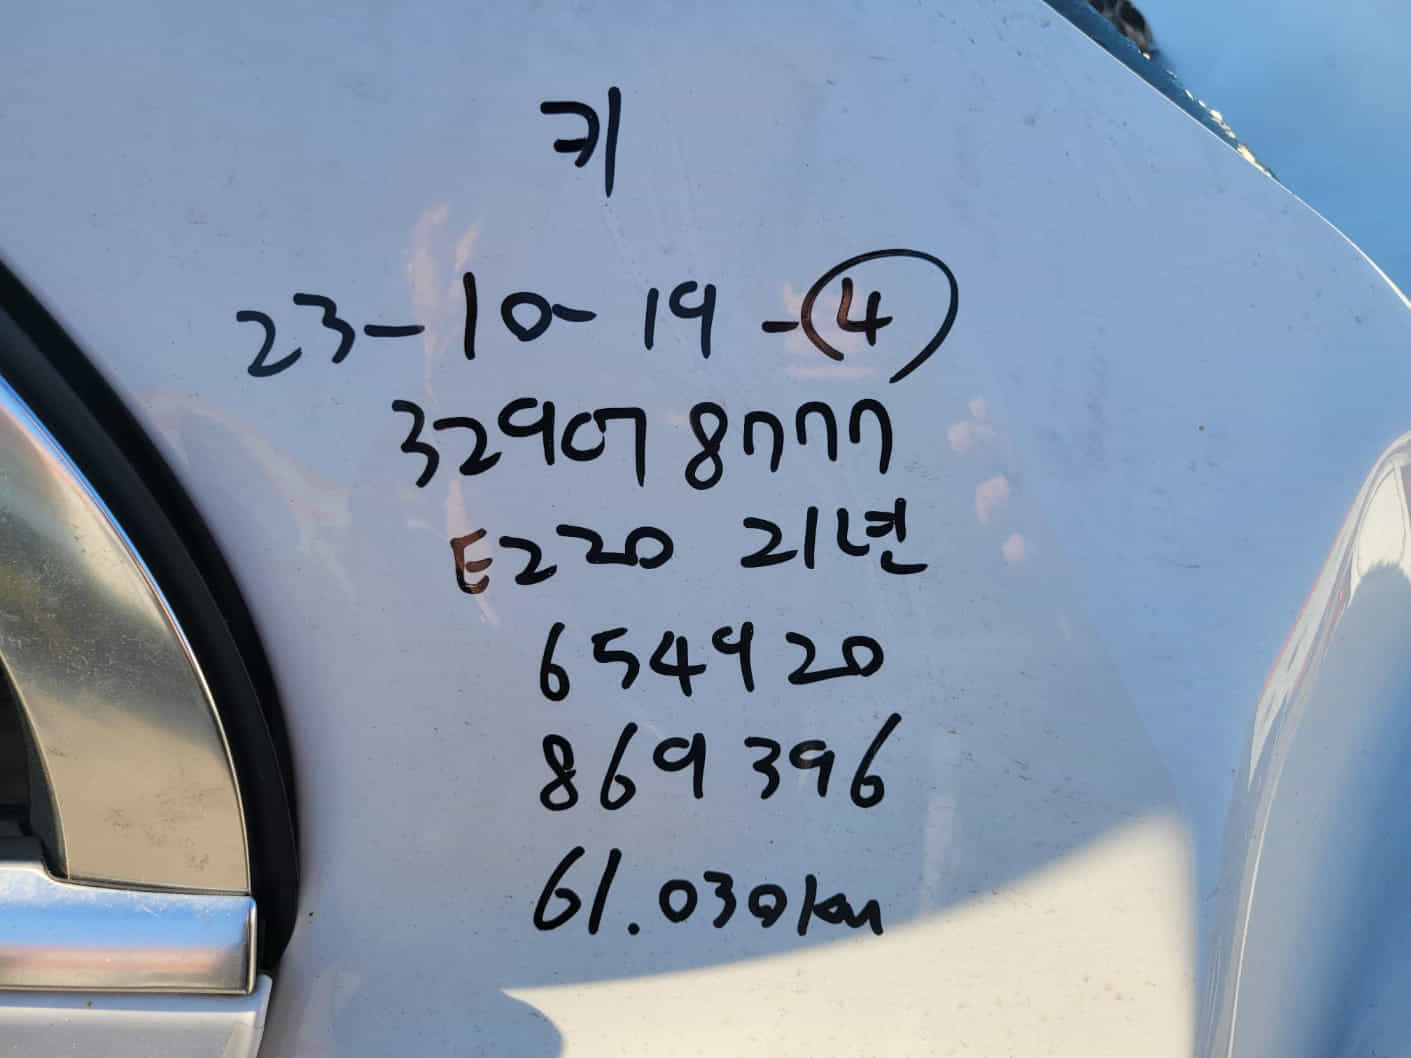 키
23-10-19-④
32907 8777
E220 21년
654920
869396
61.030km